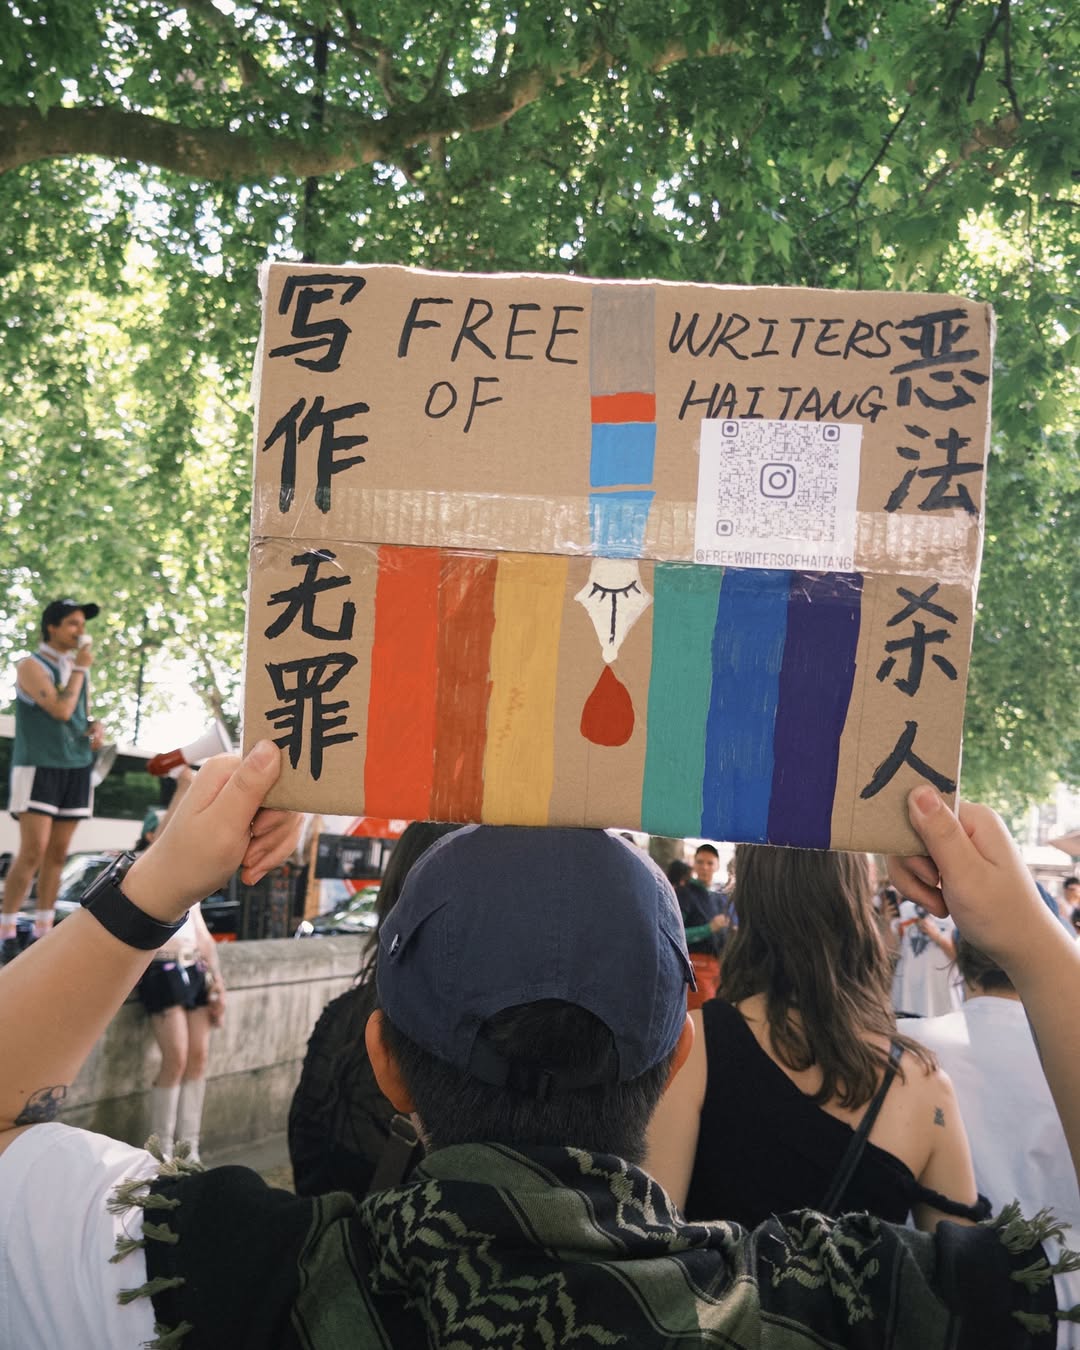 写作无罪
FREE WRITERS
OF HAITANG
@FREEWRITERSOFHAITANG
恶法杀人